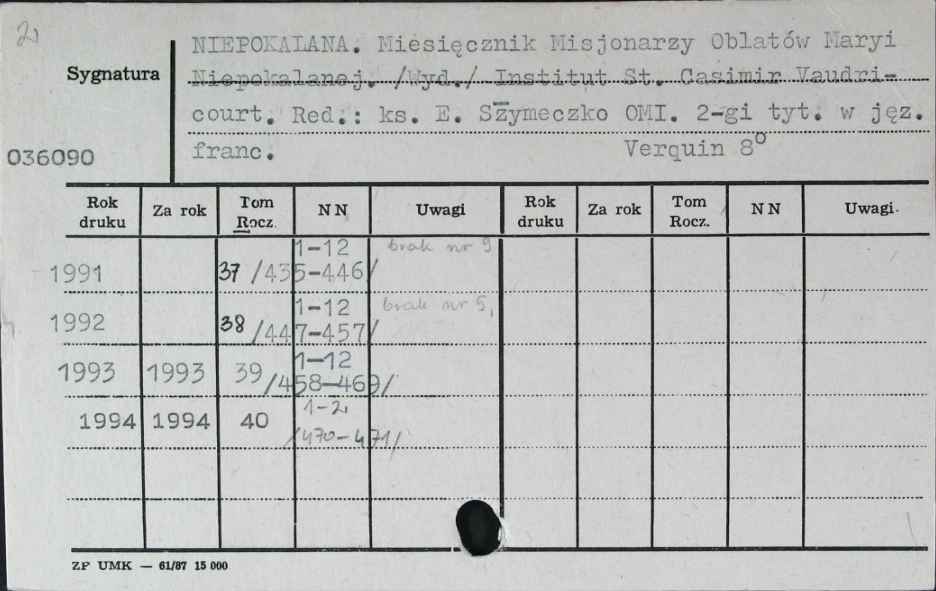 2
NIEPOKALANA. Miesięcznik Misjonarzy Oblatów Maryi
Sygnatura
Niepokalanej. /Wyd./ Institut St. Casimir Vaudri-
court. Red.: ks. E. Szymeczko OMI. 2-gi tyt. w jęz.
036090
franc. Verquin 8°
Rok druku Za rok Tom Rocz. NN Uwagi Rok druku Za rok Tom Rocz. NN Uwagi
1-12 brak nr 9
1991 37 /435-446/
1-12 brak nr 5,
1992 38 /447-457/
1-12
1993 1993 39 /458-469/
1-2
1994 1994 40
/470-471/
ZP UMK — 61/87 15 000